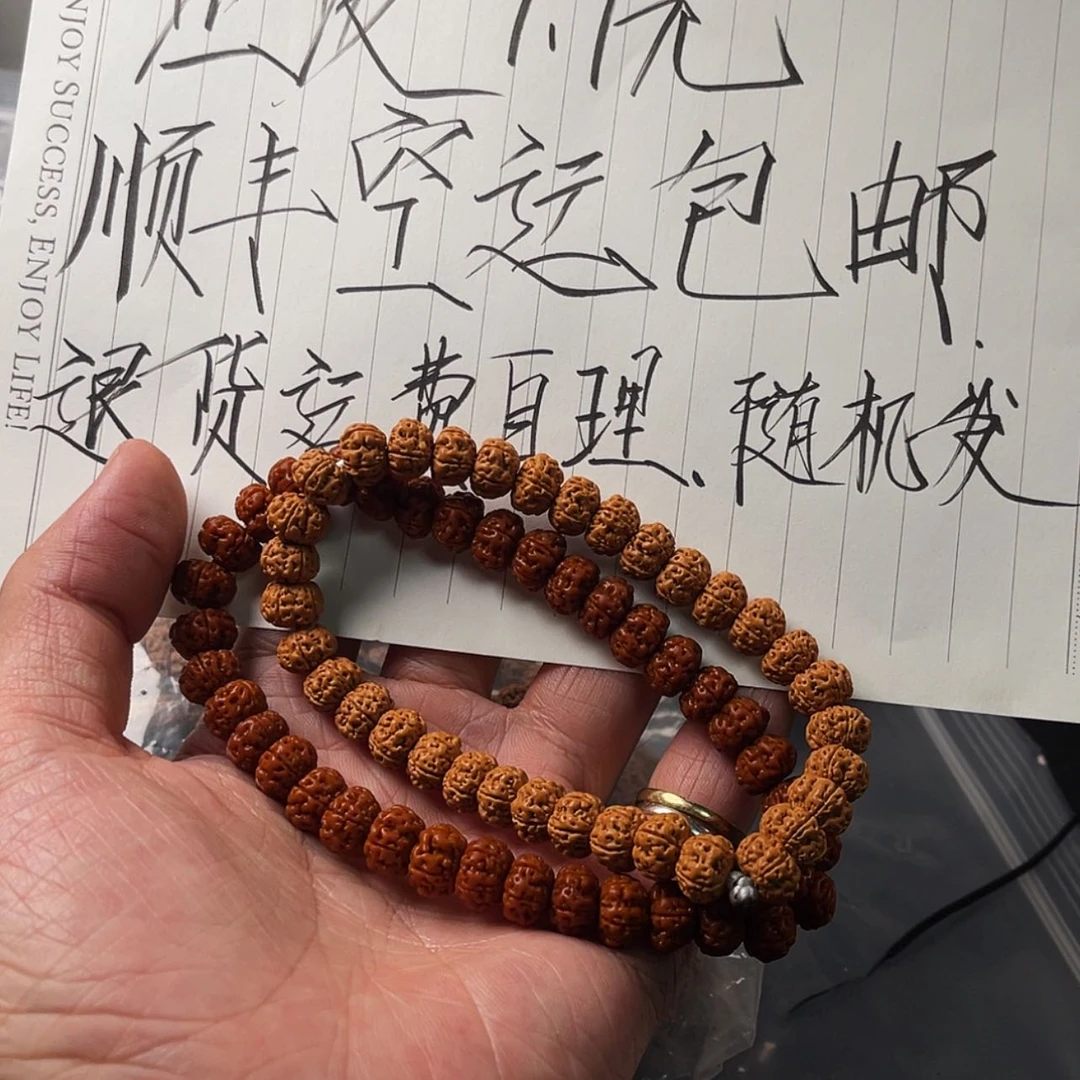 元
顺丰空运包邮.
退货运费自理、随机发
NJOY SUCCESS, ENJOY LIFE!